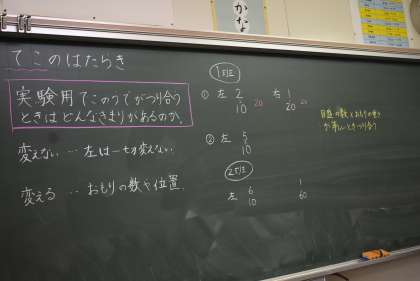 かな
てこのはたらき
実験用てこのうでがつり合う
ときはどんなきまりがあるのか。
変えない … 左は一切変えない。
変える … おもりの数や位置。
1班
① 左 2 右 1
10 20 20 20
② 左 5
10
2班
左 6 1
10 60
目盛の数とおもりの重さ
が等しいときつり合う